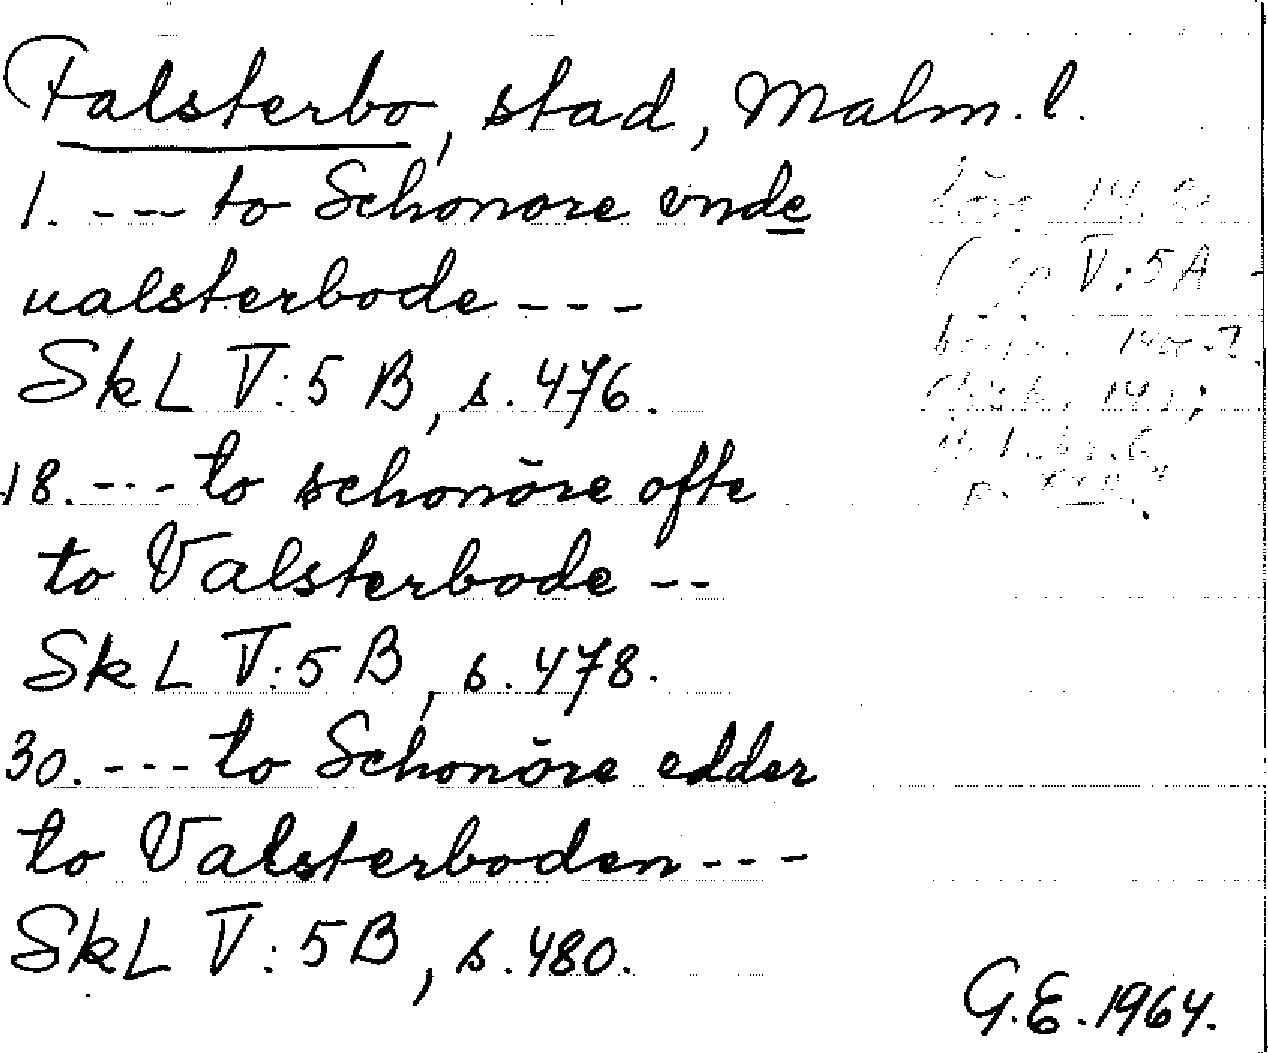 Falsterbo, stad, Malm. l.
1. --- to Schonore vnde
ualsterbode ---
SkL V:5 B, s. 476.
18. --- to schonöre ofte
to Valsterbode --
SkL V:5 B, s. 478.
30. --- to Schonöre edder
to Valsterboden ---
SkL V:5 B, s. 480.
V:5A
G.E. 1964.